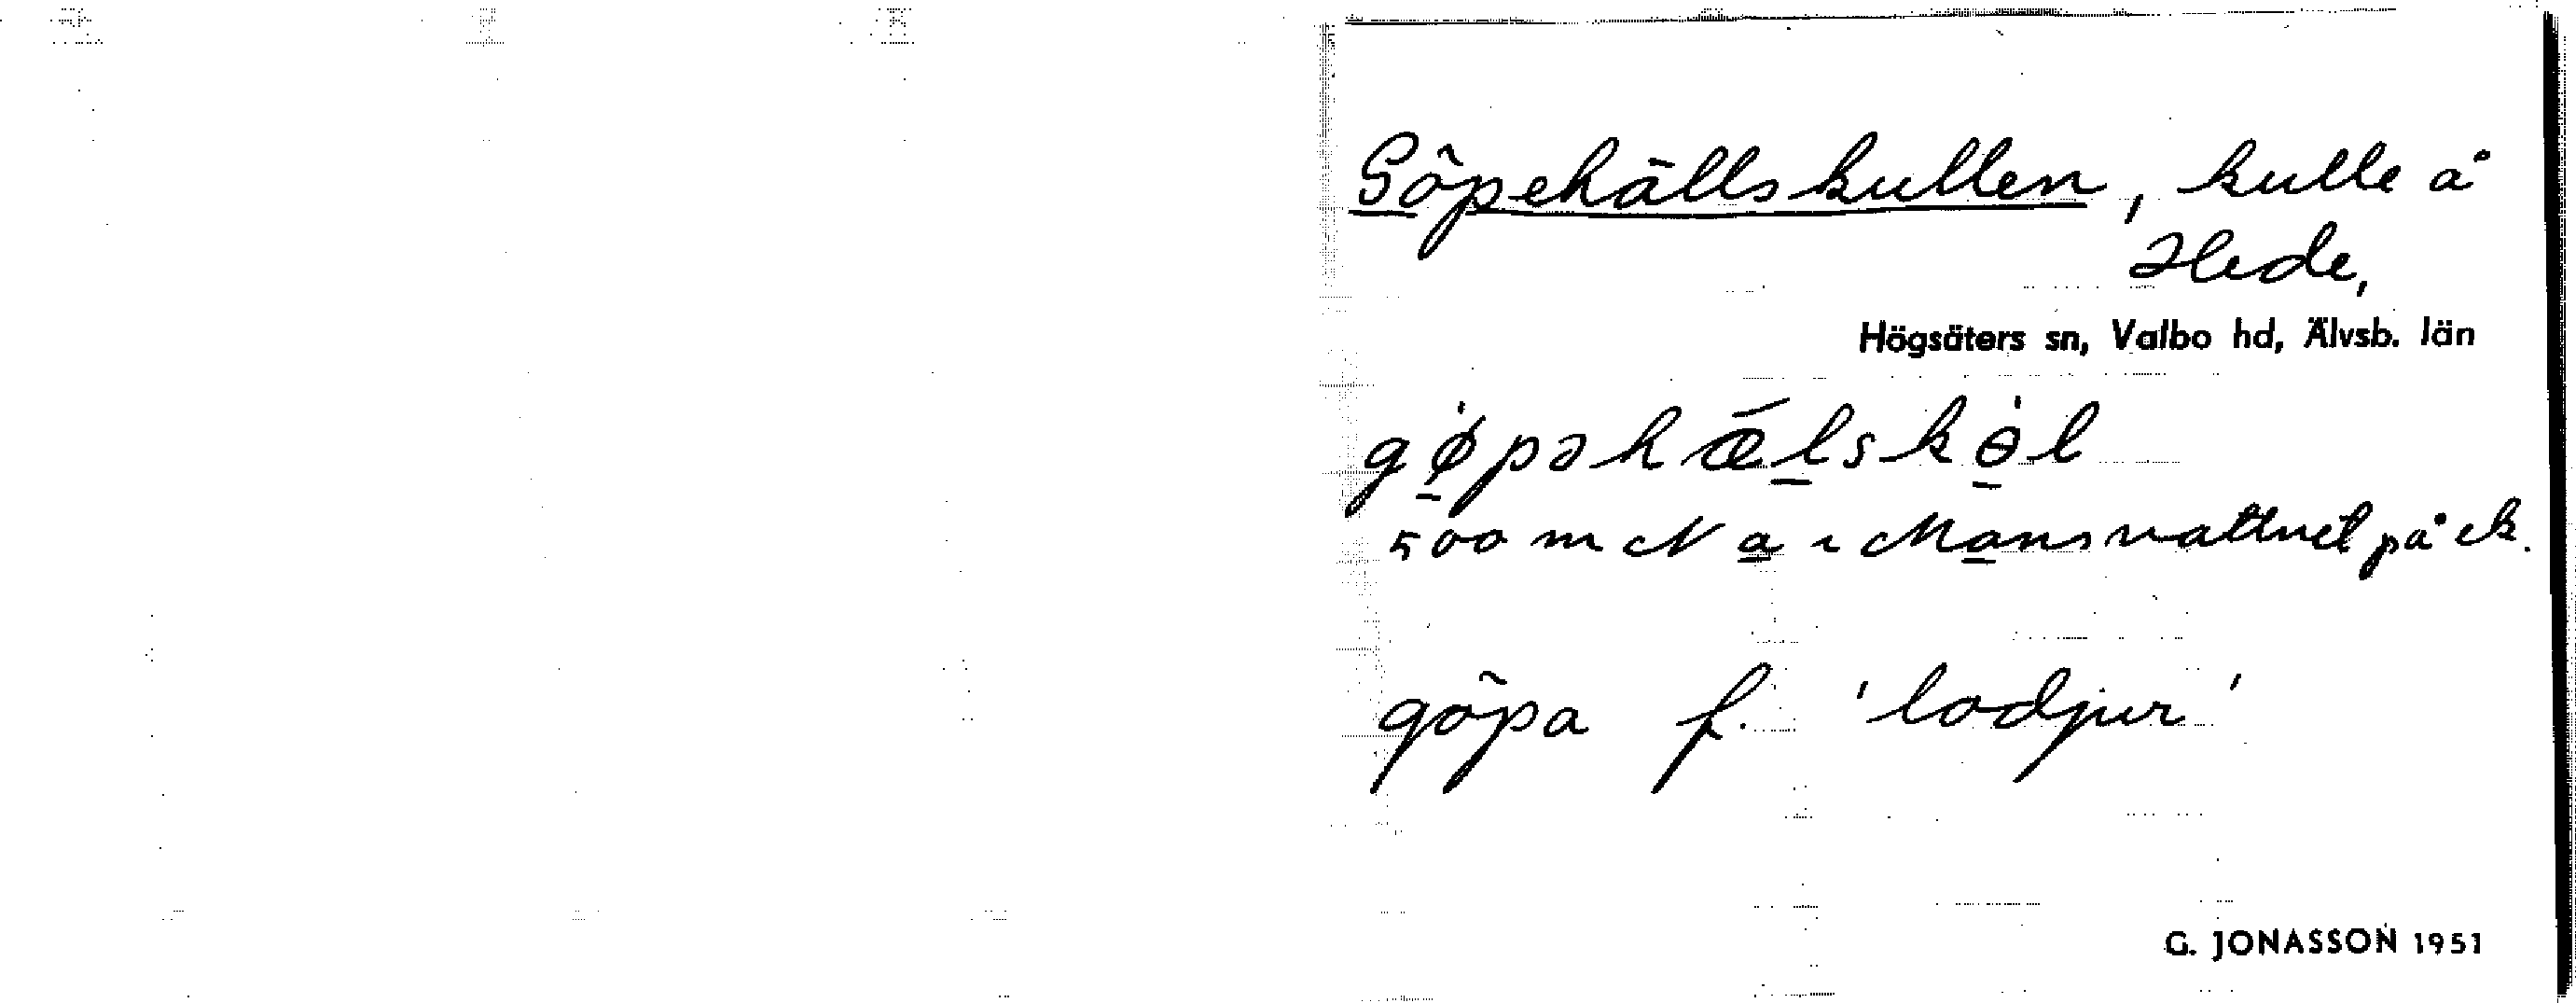 Göpehällskullen, kulle å
Hede,
Högsäters sn, Valbo hd, Älvsb. län
gø̀pəhǽlskɵ̀l
500 m N a i Mansvattnet på ek.
göpa f. 'lodjur'
G. JONASSON 1951